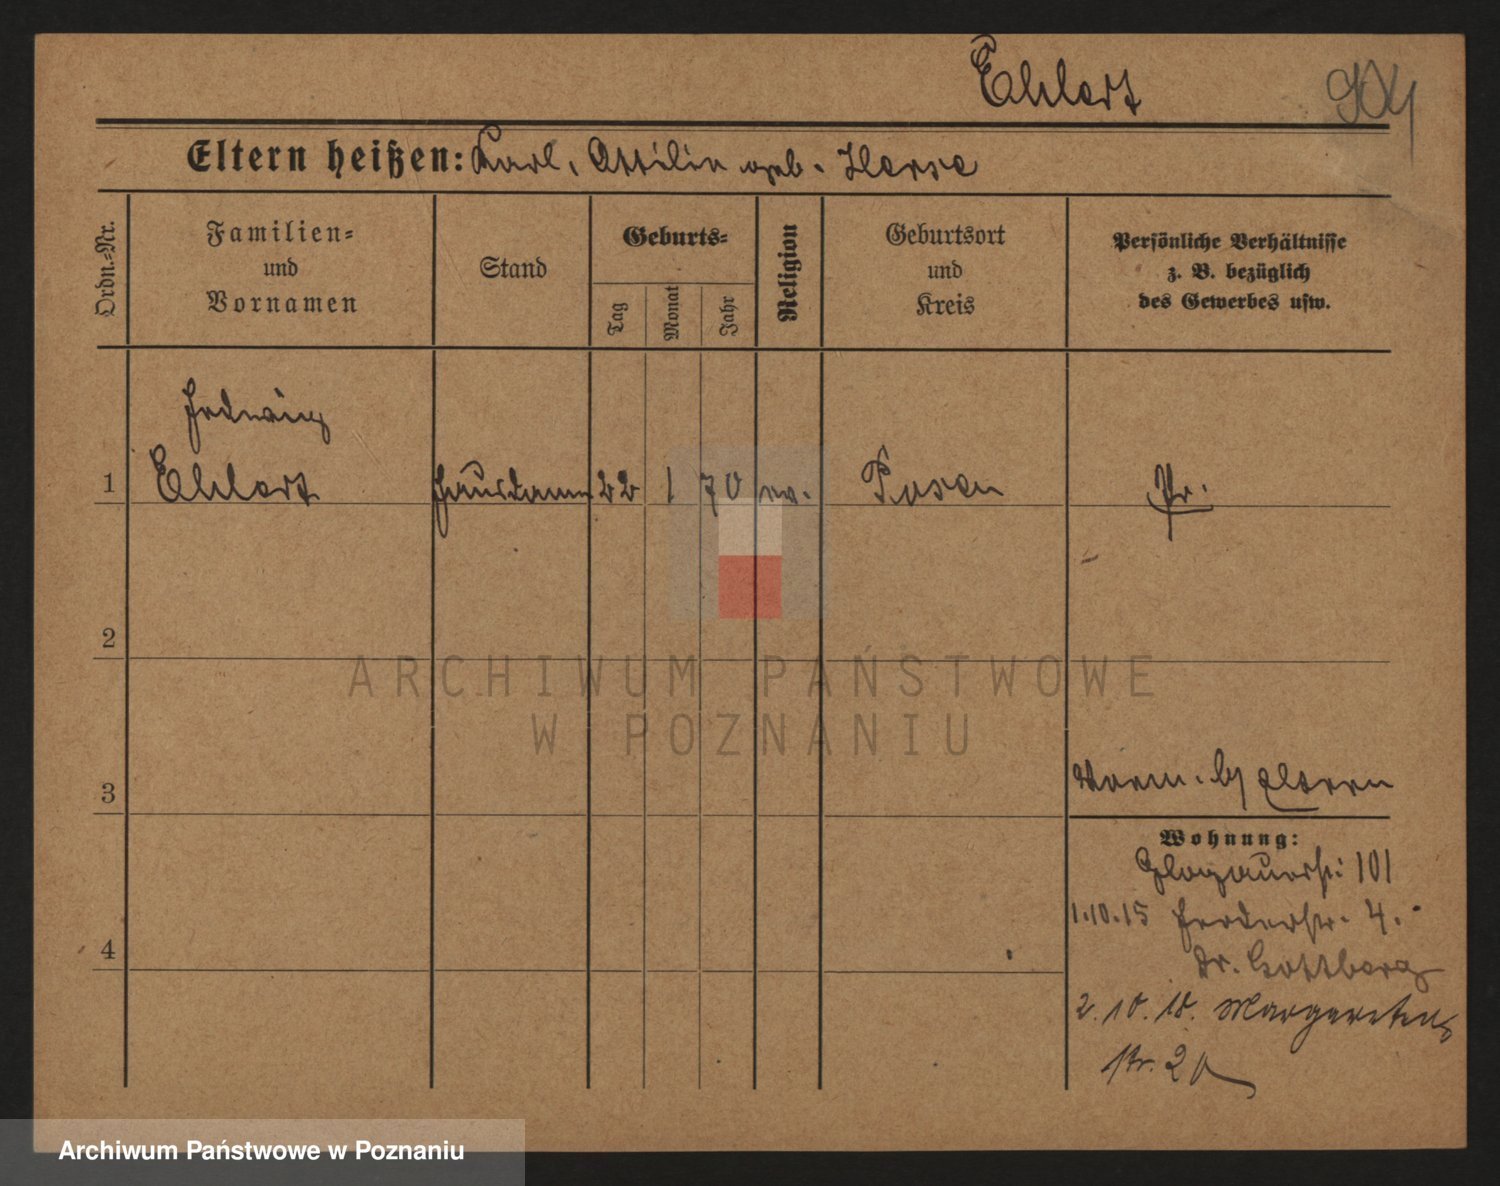 Ehlert 904
Eltern heißen: Karl, Ottilie geb. Herse
Ordn.=Nr.
Familien=
und
Vornamen
Stand
Geburts=
Tag
Monat
Jahr
Religion
Geburtsort
und
Kreis
Persönliche Verhältnisse
z. B. bezüglich
des Gewerbes usw.
Hedwig
1 Ehlert Hausdame 22 1 70 ev. Posen Pr.
2
ARCHIWUM PAŃSTWOWE
W POZNANIU
3 Eltern
Wohnung:
Glogauerstr. 101
1.10.15 4.
Dr. Gottberg
2.10.18. Margareten
str. 2
4
Archiwum Państwowe w Poznaniu